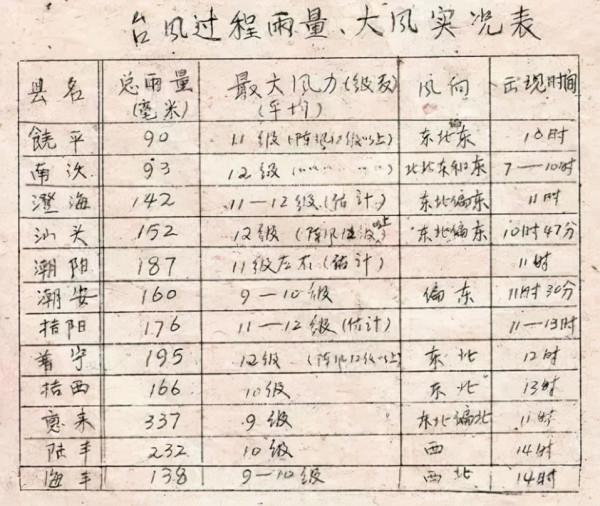 台风过程雨量、大风实况表
县名 总雨量(毫米) 最大风力(级数)(平均) 风向 出现时间
饶平 90 11级(阵风12级以上) 东北偏东 10时
南汶 93 12级(〃〃〃〃〃) 北北东和东 7—10时
澄海 142 11—12级(估计) 东北偏东 11时
汕头 152 12级(阵风12级以上) 东北偏东 10时47分
潮阳 187 11级左右(估计) 11时
潮安 160 9—10级 偏东 11时30分
揩阳 176 11—12级(估计) 11—13时
普宁 195 12级(阵风12级以上) 东北 12时
揩西 166 10级 东北 13时
惠来 337 9级 东北偏北 11时
陆丰 232 10级 西 14时
海丰 138 9—10级 西北 14时